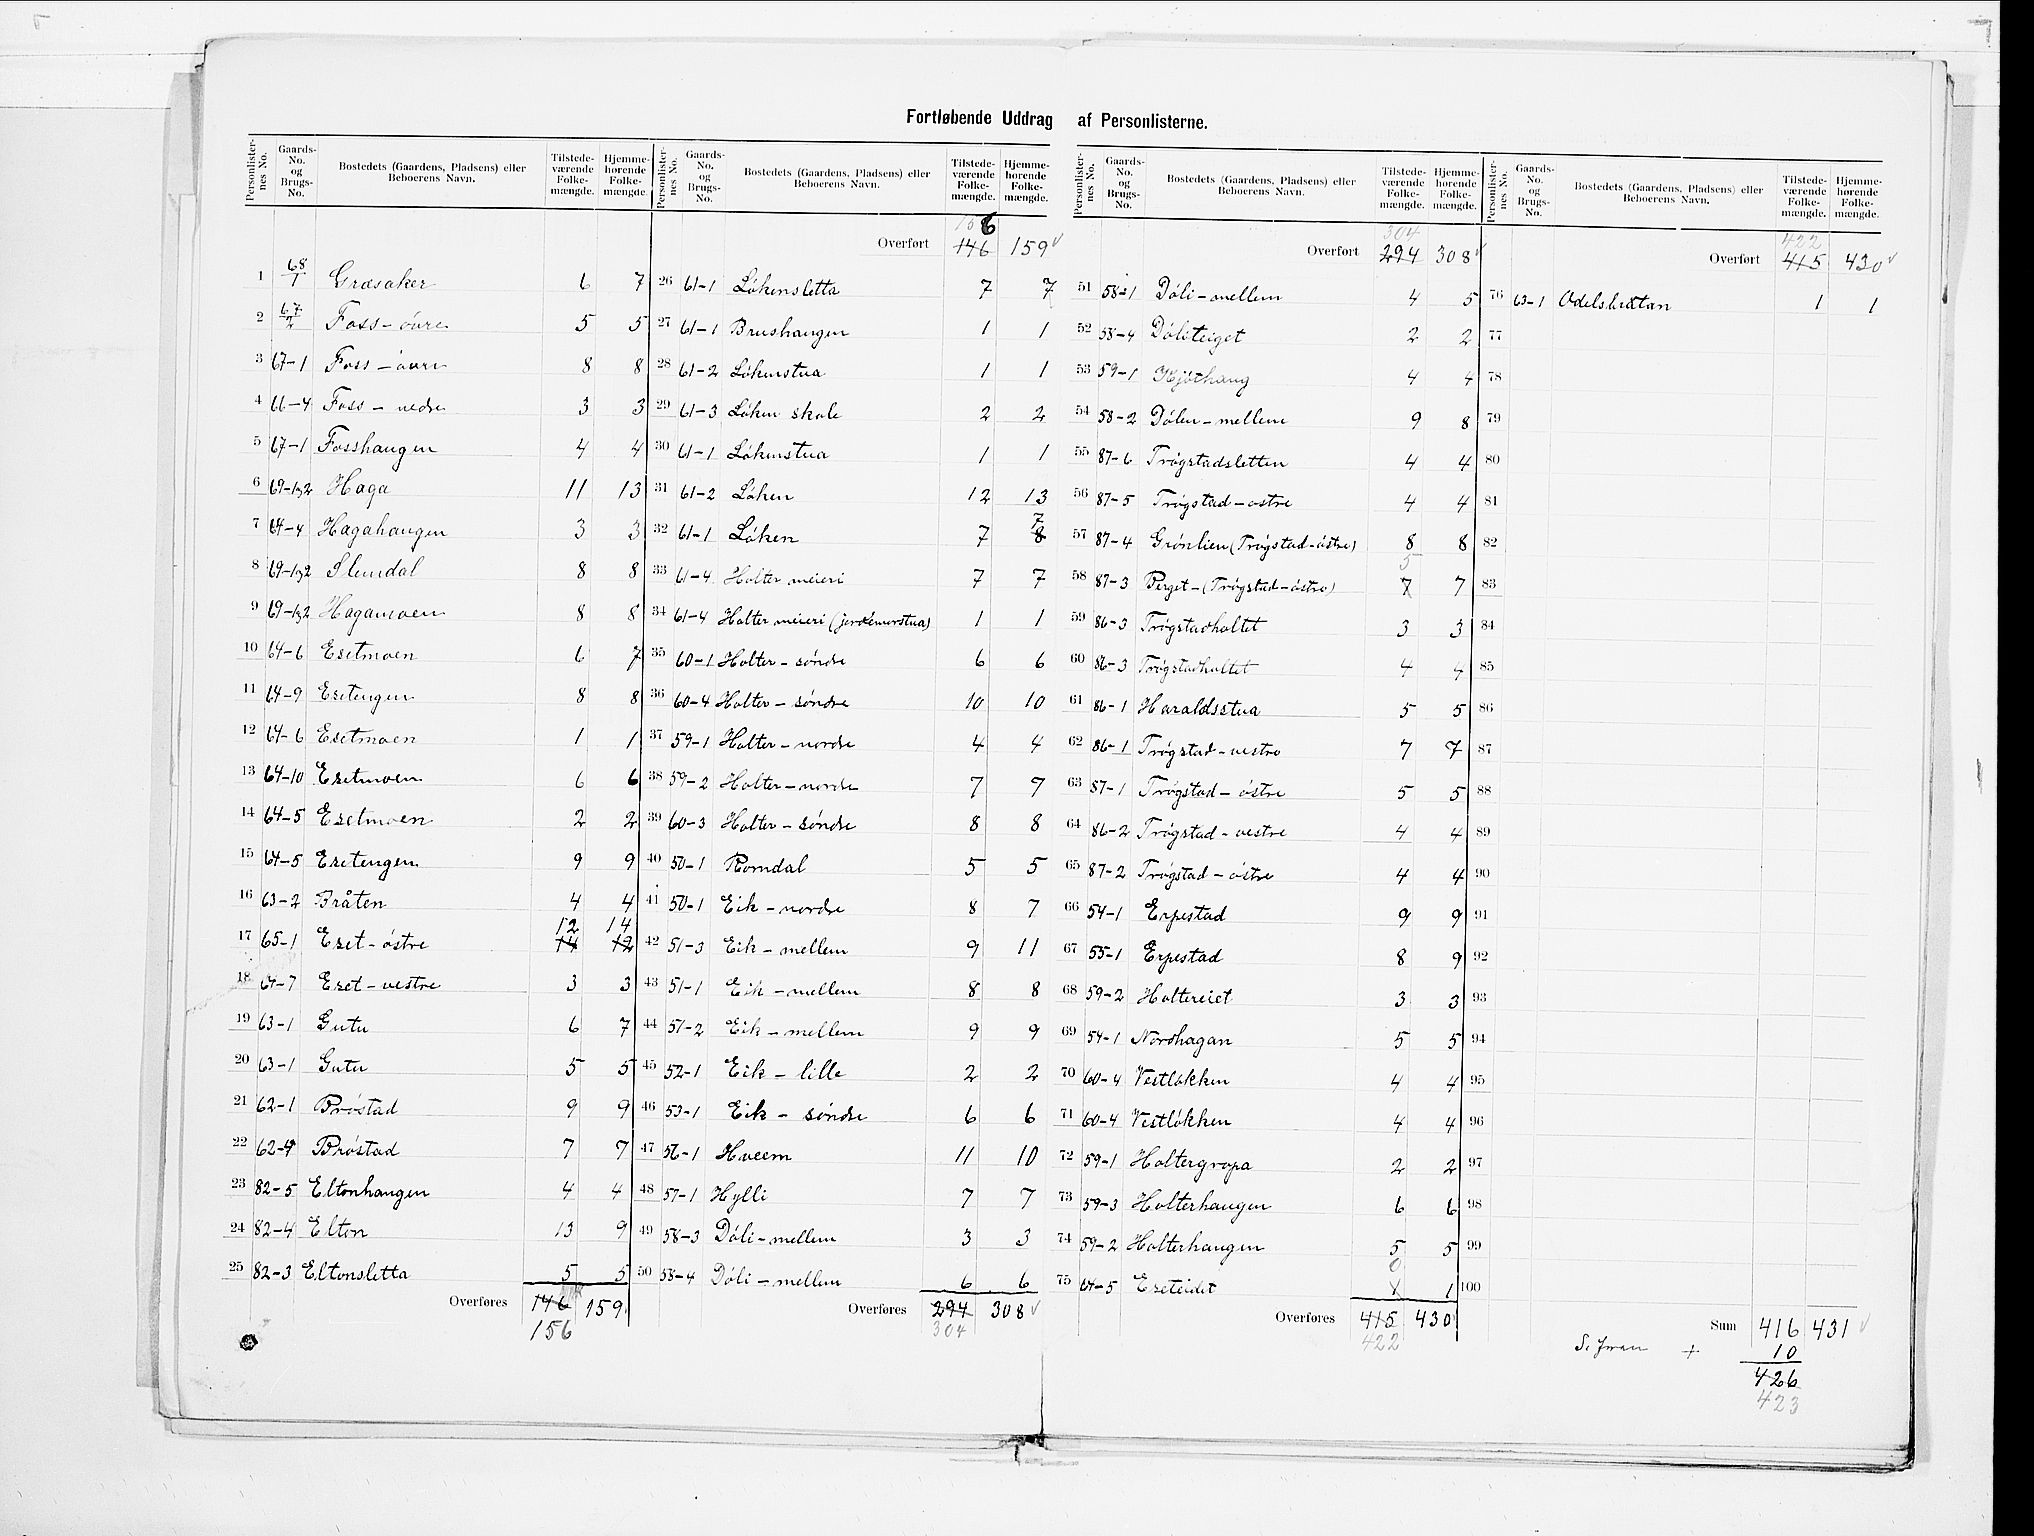 Fortløbende Uddrag af Personlisterne.
Personlisternes No. Gaards-No. og Brugs-No. Bostedets (Gaardens, Pladsens) eller Beboerens Navn. Tilstedeværende Folkemængde. Hjemmehørende Folkemængde.
1 68/1 Græsaker 6 7
2 67/2 Foss-øvre 5 5
3 67-1 Foss-øvre 8 8
4 66-4 Foss-nedre 3 3
5 67-1 Fosshaugen 4 4
6 69-1,2 Haga 11 13
7 64-4 Hagahaugen 3 3
8 69-1,2 Slemdal 8 8
9 69-1,2 Hagamoen 8 8
10 64-6 Esetmoen 6 7
11 64-9 Esetengen 8 8
12 64-6 Esetmoen 1 1
13 64-10 Esetmoen 6 6
14 64-5 Esetmoen 2 2
15 64-5 Esetengen 9 9
16 63-2 Bråten 4 4
12 14
17 65-1 Eset-østre 14 12
18 64-7 Eset-vestre 3 3
19 63-1 Gutu 6 7
20 63-1 Gutu 5 5
21 62-1 Brøstad 9 9
22 62-4 Brøstad 7 7
23 82-5 Eltonhaugen 4 4
24 82-4 Elton 13 9
25 82-3 Eltonsletta 5 5
Overføres 146 159
156
Personlisternes No. Gaards-No. og Brugs-No. Bostedets (Gaardens, Pladsens) eller Beboerens Navn. Tilstedeværende Folkemængde. Hjemmehørende Folkemængde.
156
Overført 146 159 ✓
26 61-1 Løkensletta 7 7
27 61-1 Brushaugen 1 1
28 61-2 Løkenstua 1 1
29 61-3 Løken skole 2 2
30 61-1 Løkenstua 1 1
31 61-2 Løken 12 13
7
32 61-1 Løken 7 8
33 61-4 Holter meieri 7 7
34 61-4 Holter meieri (jordemorstua) 1 1
35 60-1 Holter-søndre 6 6
36 60-4 Holter-søndre 10 10
37 59-1 Holter-nordre 4 4
38 59-2 Holter-nordre 7 7
39 60-3 Holter-søndre 8 8
40 50-1 Romdal 5 5
41 50-1 Eik-nordre 8 7
42 51-3 Eik-mellem 9 11
43 51-1 Eik-mellem 8 8
44 51-2 Eik-mellem 9 9
45 52-1 Eik-lille 2 2
46 53-1 Eik-søndre 6 6
47 56-1 Hveem 11 10
48 57-1 Hylli 7 7
49 58-3 Døli-mellem 3 3
50 58-4 Døli-mellem 6 6
Overføres 294 308 ✓
304
Personlisternes No. Gaards-No. og Brugs-No. Bostedets (Gaardens, Pladsens) eller Beboerens Navn. Tilstedeværende Folkemængde. Hjemmehørende Folkemængde.
304
Overført 294 308 ✓
51 58-1 Døli-mellem 4 5
52 58-4 Døliteiget 2 2
53 59-1 Kjøshaug 4 4
54 58-2 Dølen-mellem 9 8
55 87-6 Trøgstadsletten 4 4
56 87-5 Trøgstad-østre 4 4
57 87-4 Grønlien (Trøgstad-østre) 8 8
5
58 87-3 Berget-(Trøgstad-østre) 7 7
59 86-3 Trøgstadholtet 3 3
60 86-3 Trøgstadholtet 4 4
61 86-1 Haraldsstua 5 5
62 86-1 Trøgstad-vestre 7 7
63 87-1 Trøgstad-østre 5 5
64 86-2 Trøgstad-vestre 4 4
65 87-2 Trøgstad-østre 4 4
66 54-1 Erpestad 9 9
67 55-1 Erpestad 8 9
68 59-2 Holtereiet 3 3
69 54-1 Nordhagan 5 5
70 60-4 Vestløkken 4 4
71 60-4 Vestløkken 4 4
72 59-1 Holtergropa 2 2
73 59-3 Holterhaugen 6 6
74 59-2 Holterhaugen 5 5
0
75 64-5 Eseteidet 1 1
Overføres 415 430
422
Personlisternes No. Gaards-No. og Brugs-No. Bostedets (Gaardens, Pladsens) eller Beboerens Navn. Tilstedeværende Folkemængde. Hjemmehørende Folkemængde.
422
Overført 415 430 ✓
76 63-1 Odelsbråtan 1 1
77
78
79
80
81
82
83
84
85
86
87
88
89
90
91
92
93
94
95
96
97
98
99
100
Sum 416 431 ✓
+ 10
426
423